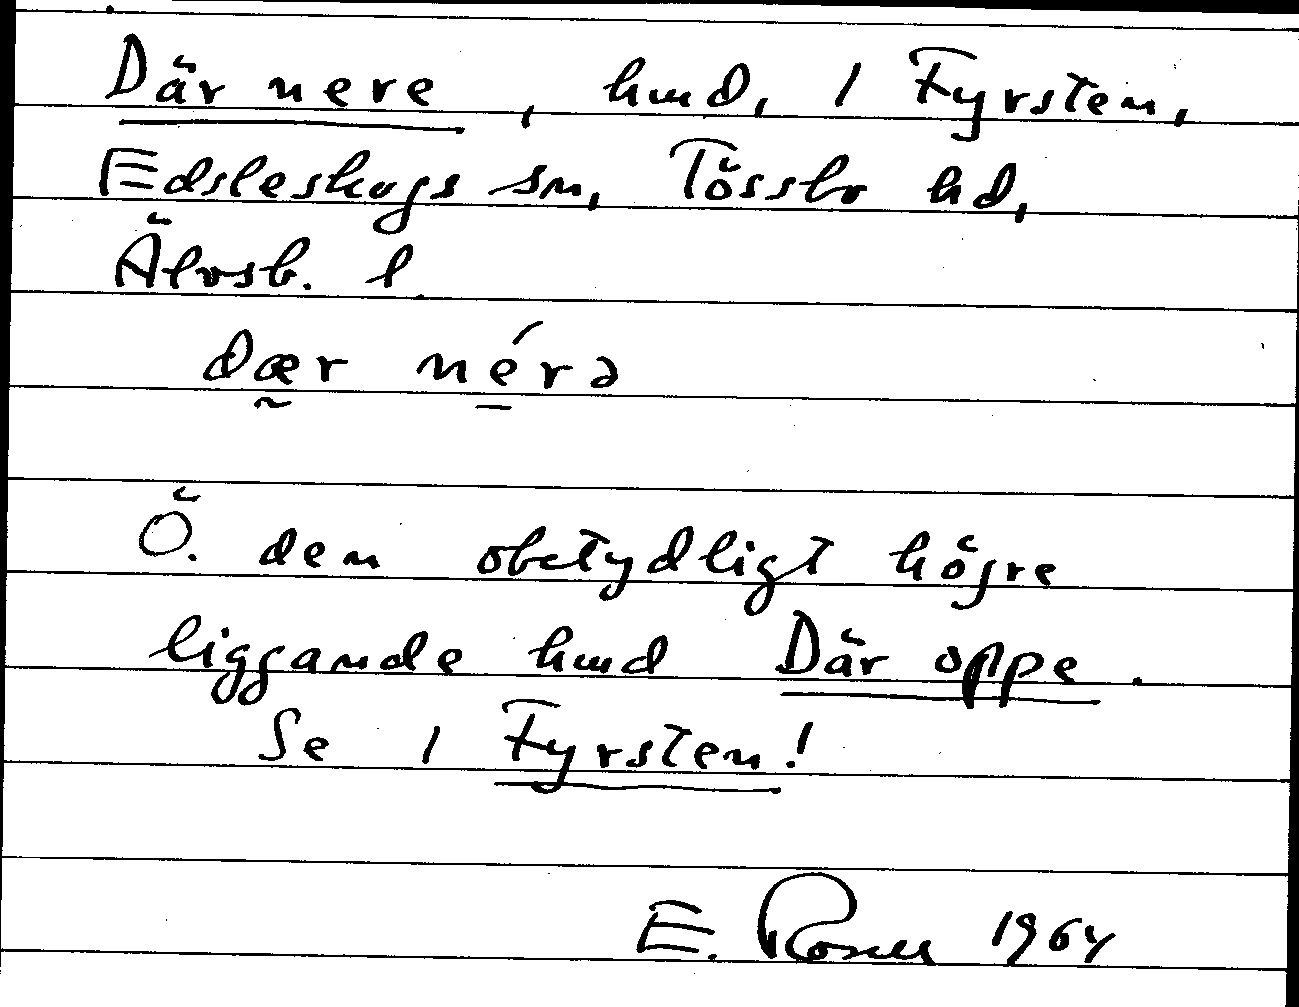 Där nere, hmd, 1 Fyrsten,
Edsleskogs sn, Tössbo hd,
Älvsb. l.
dær nérə
Ö. den obetydligt högre
liggande hmd Där oppe.
Se 1 Fyrsten!
E. Rosell 1964